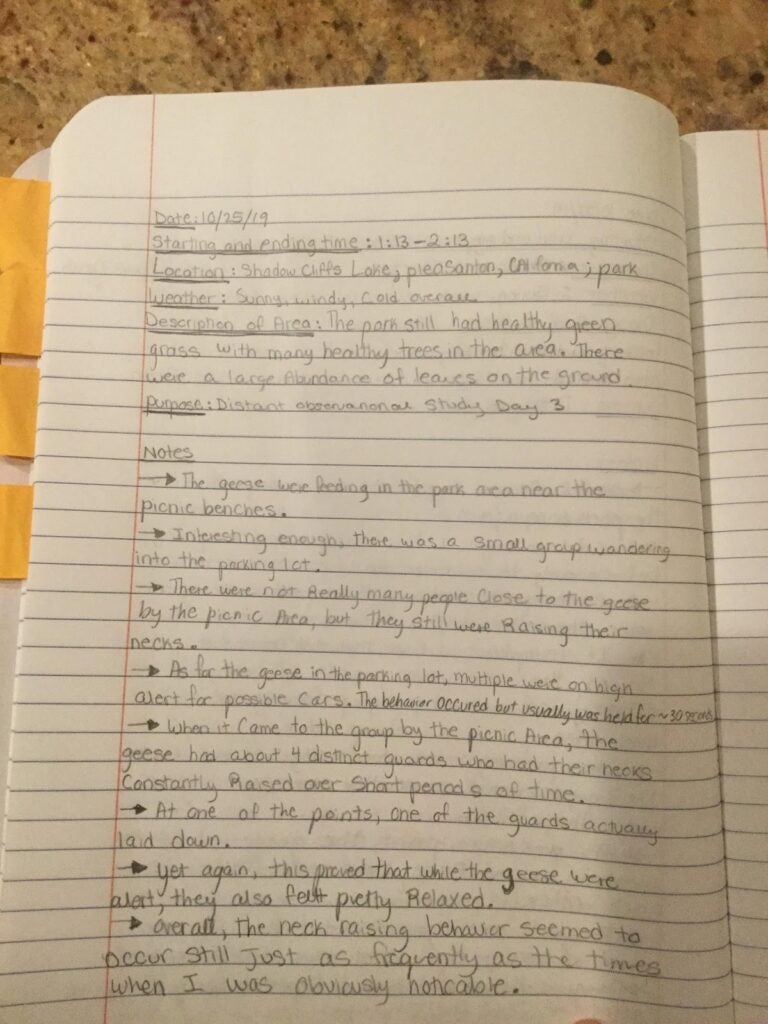 Date: 10/25/19
Starting and ending time: 1:13-2:13
Location: Shadow Cliffs Lake, pleasanton, California; park
Weather: Sunny, windy, Cold overall
Description of Area: The park still had healthy green
grass with many healthy trees in the area. There
were a large Abundance of leaves on the ground.
Purpose: Distant observational Study Day 3
Notes
→ The geese were feeding in the park area near the
picnic benches.
→ Interesting enough, there was a small group wandering
into the parking lot.
→ There were not Really many people Close to the geese
by the picnic Area, but they still were Raising their
necks.
→ As for the geese in the parking lot, multiple were on high
alert for possible Cars. The behavior occured but usually was held for ~30 seconds
→ When it Came to the group by the picnic Area, the
geese had about 4 distinct guards who had their necks
Constantly Raised over Short periods of time.
→ At one of the points, one of the guards actually
laid down.
→ yet again, this proved that while the geese were
alert, they also felt pretty Relaxed.
→ overall, the neck raising behavior seemed to
occur still Just as frequently as the times
when I was obviously noticable.